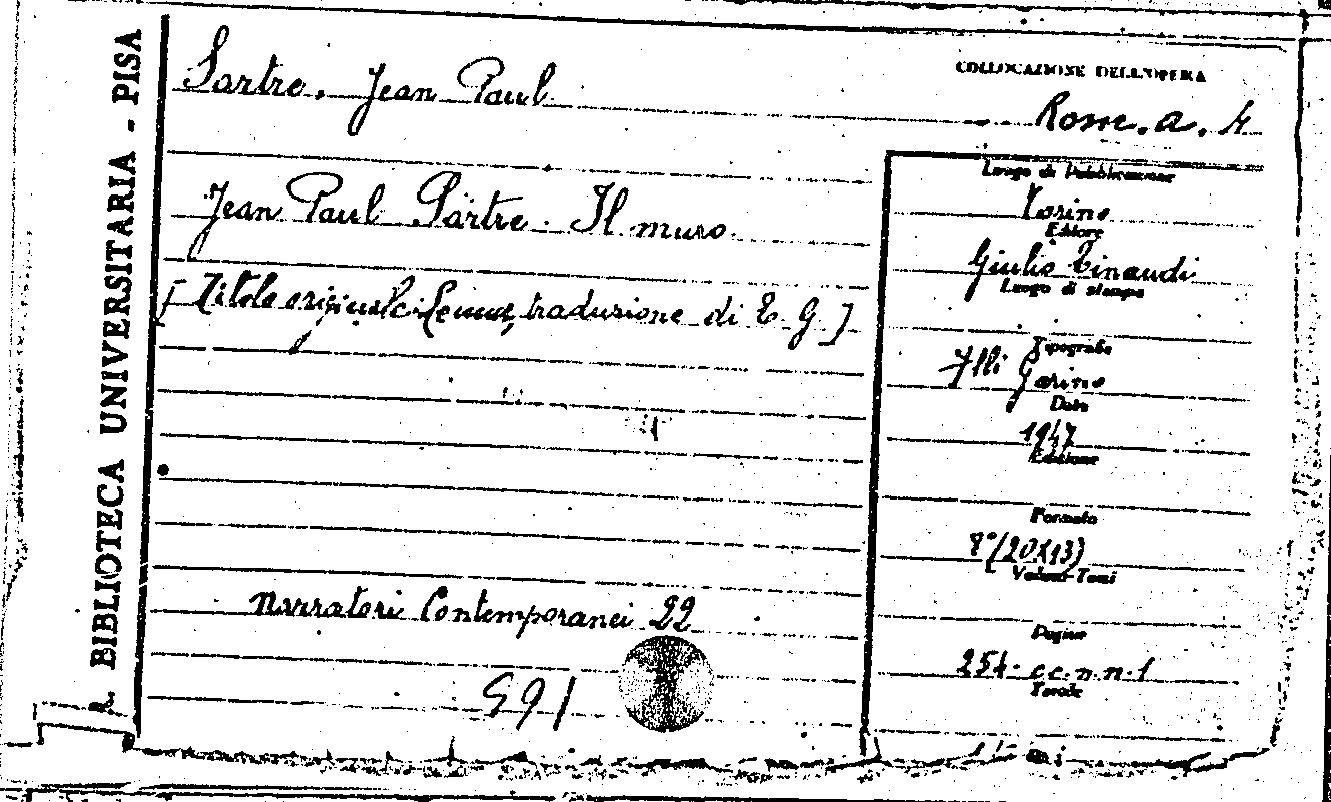 R. BIBLIOTECA UNIVERSITARIA - PISA
Sartre, Jean Paul
COLLOCAZIONE DELL'OPERA
Rom. a. 4
Jean Paul Sartre. Il muro.
[Titolo originale: Le mur, traduzione di E. G.]
Narratori Contemporanei 22
591
Luogo di Pubblicazione
Torino
Editore
Giulio Einaudi
Luogo di stampa
Tipografo
F.lli Garino
Data
1947
Edizione
Formato
8°(20x13)
Volumi-Tomi
Pagine
254. cc.n.n.1
Tavole